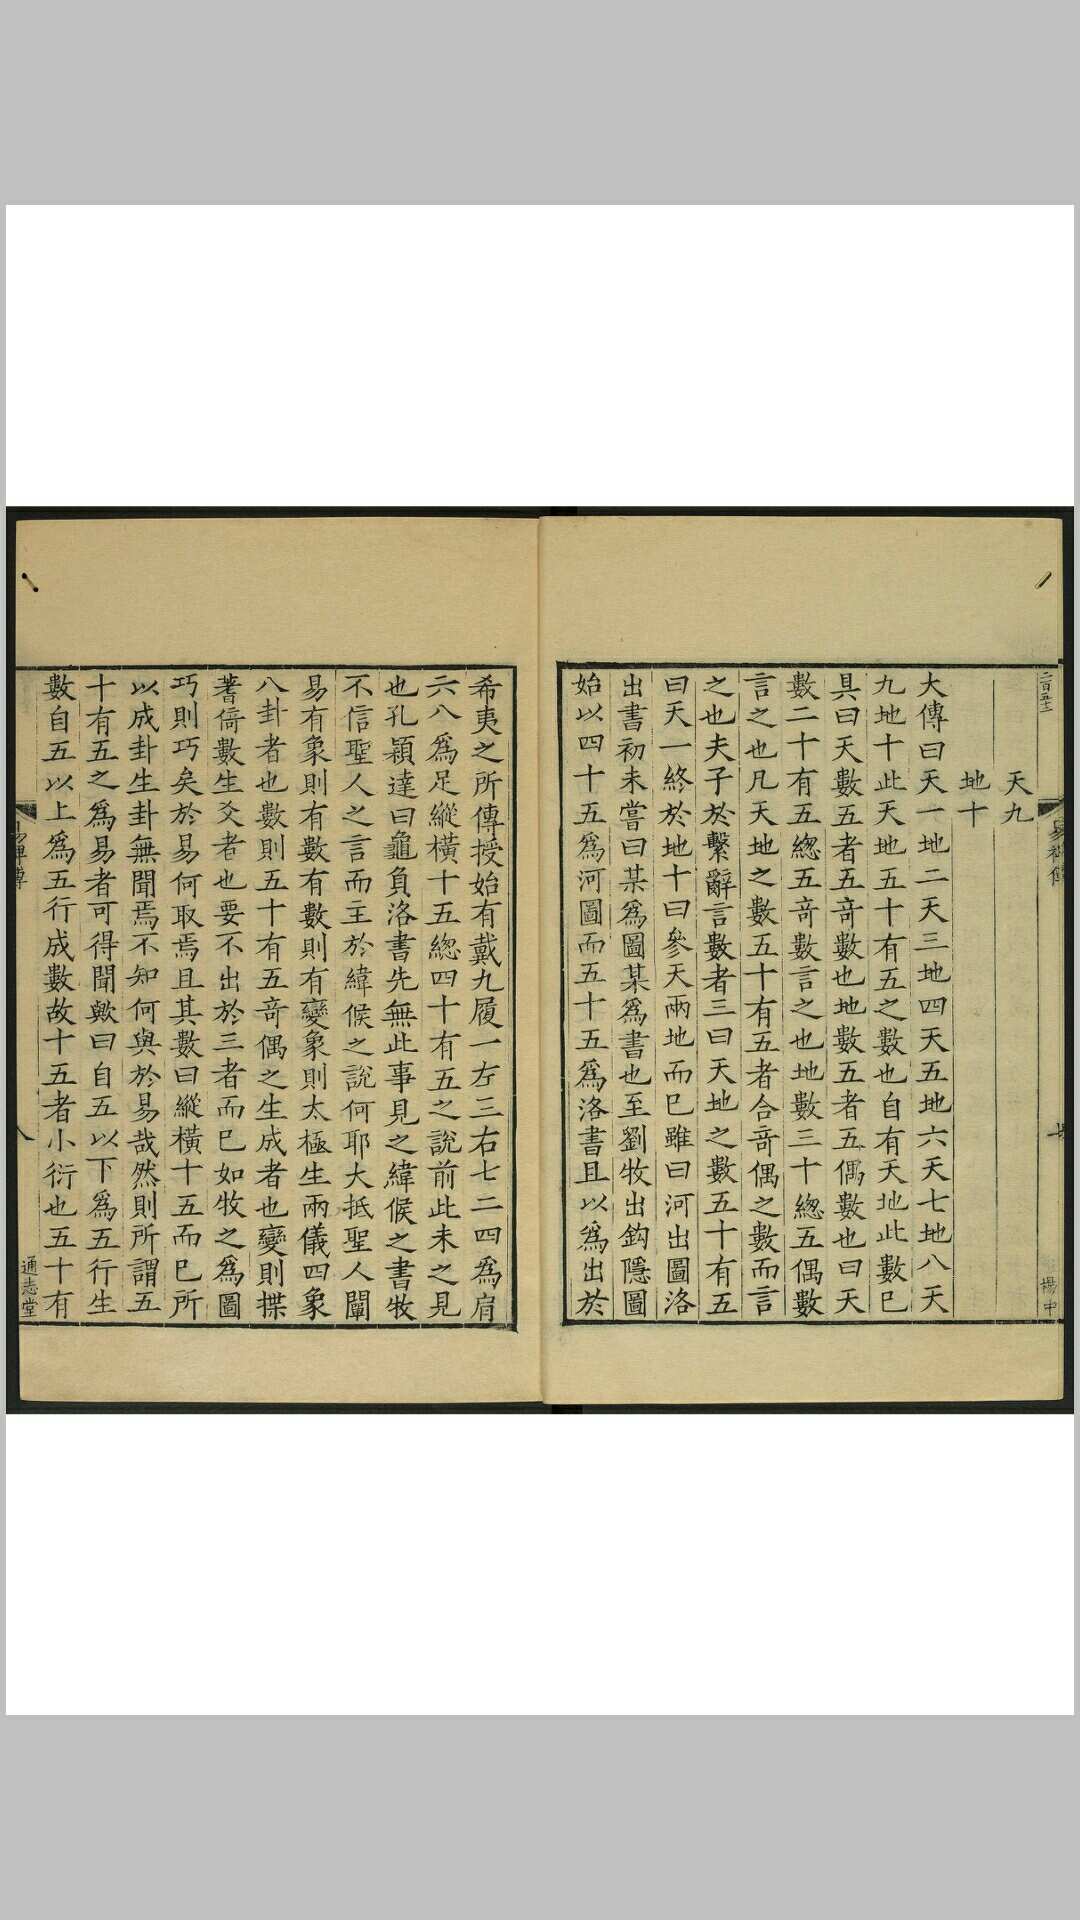 二百五十三
易裨傳
七
楊中
天九
地十
大傳曰天一地二天三地四天五地六天七地八天
九地十此天地五十有五之數也自有天地此數已
具曰天數五者五竒數也地數五者五偶數也曰天
數二十有五緫五竒數言之也地數三十緫五偶數
言之也凡天地之數五十有五者合竒偶之數而言
之也夫子於繫辭言數者三曰天地之數五十有五
曰天一終於地十曰參天兩地而已雖曰河出圖洛
出書初未嘗曰某爲圖某爲書也至劉牧出鈎隱圖
始以四十五爲河圖而五十五爲洛書且以爲出於
希夷之所傳授始有戴九履一左三右七二四爲肩
六八爲足縱橫十五緫四十有五之說前此未之見
也孔穎達曰龜負洛書先無此事見之緯候之書牧
不信聖人之言而主於緯候之說何耶大抵聖人闡
易有象則有數有數則有變象則太極生兩儀四象
八卦者也數則五十有五竒偶之生成者也變則揲
蓍倚數生爻者也要不出於三者而已如牧之爲圖
巧則巧矣於易何取焉且其數曰縱橫十五而已所
以成卦生卦無聞焉不知何與於易哉然則所謂五
十有五之爲易者可得聞歟曰自五以下爲五行生
數自五以上爲五行成數故十五者小衍也五十有
易裨傳
八
通志堂